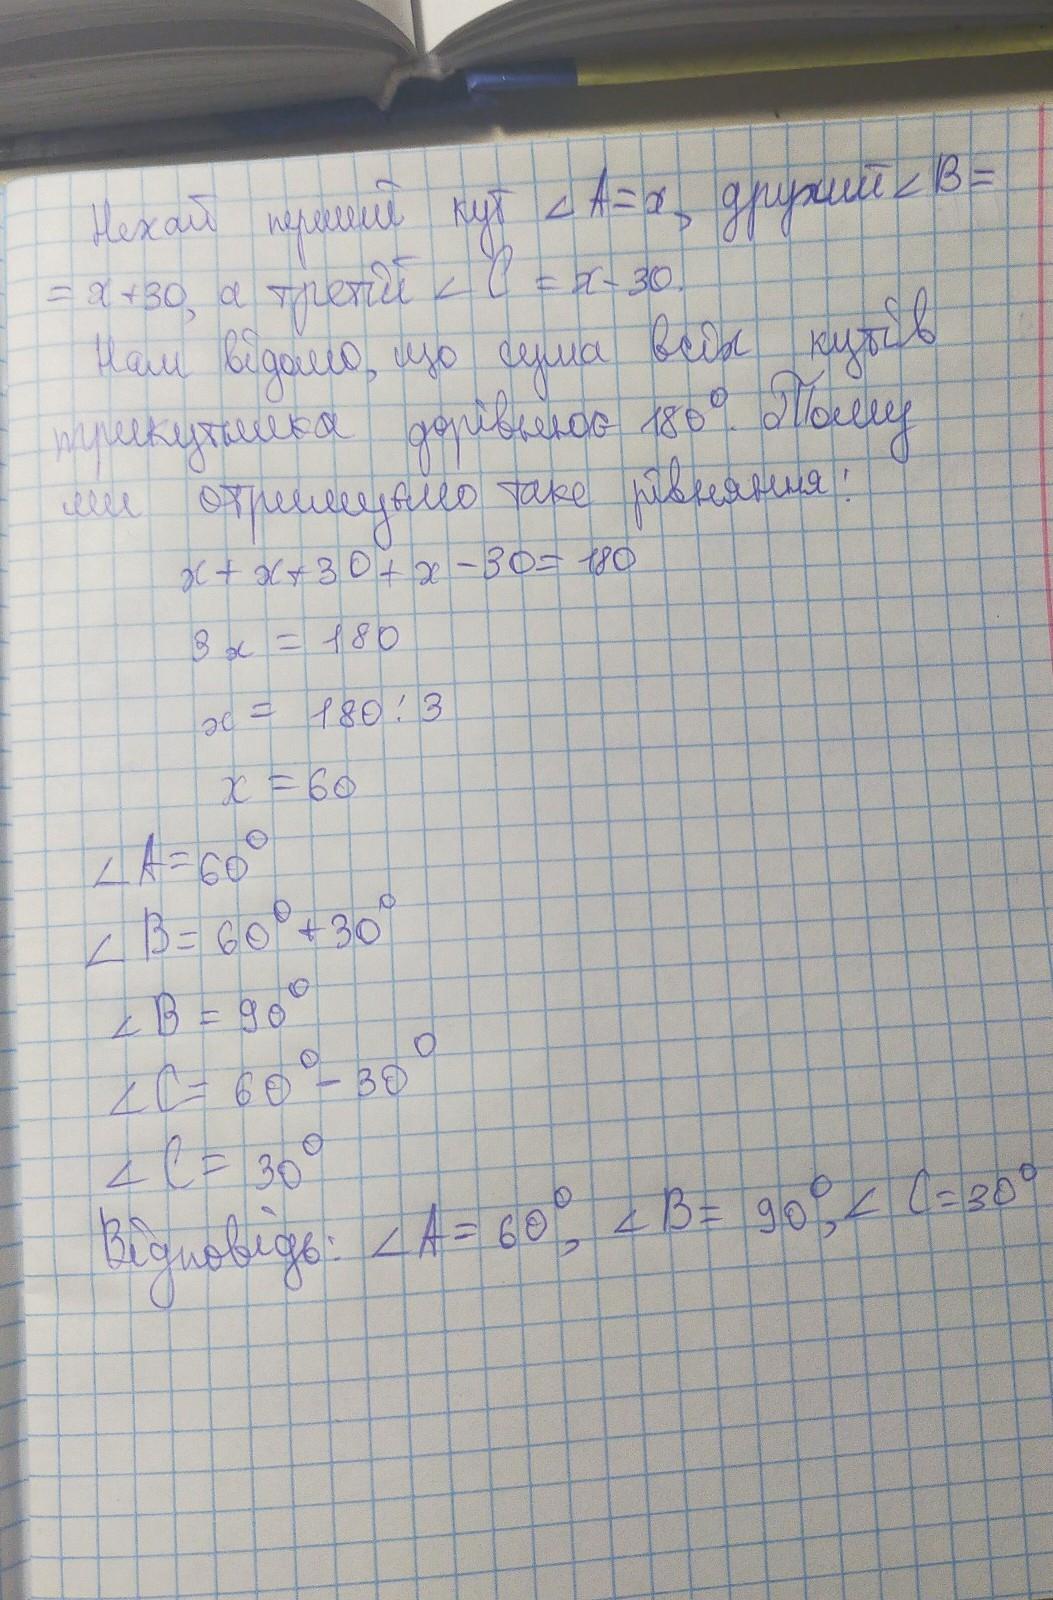 Нехай перший кут ∠A=x, другий ∠B=
=x+30, а третій ∠C=x-30.
Нам відомо, що сума всіх кутів
трикутника дорівнює 180°. Тому
ми отримуємо таке рівняння:
x+x+30+x-30=180
3x=180
x=180:3
x=60
∠A=60°
∠B=60°+30°
∠B=90°
∠C=60°-30°
∠C=30°
Відповідь: ∠A=60°, ∠B=90°, ∠C=30°